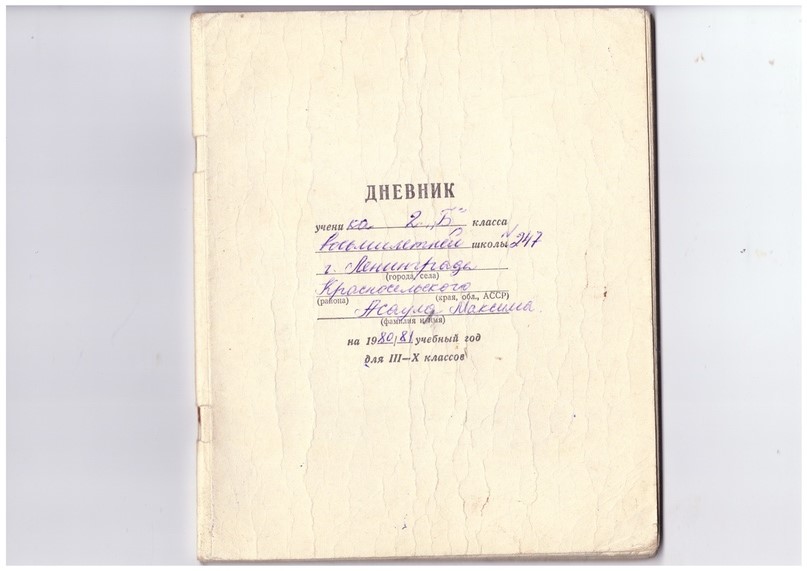 ДНЕВНИК
ученика 2 „Б" класса
восьмилетней школы № 247
г. Ленинграда
(города, села)
Красносельского
(района) (край, обл., АССР)
Асаула Максима
(фамилия и имя)
на 1980/81 учебный год
для III—X классов